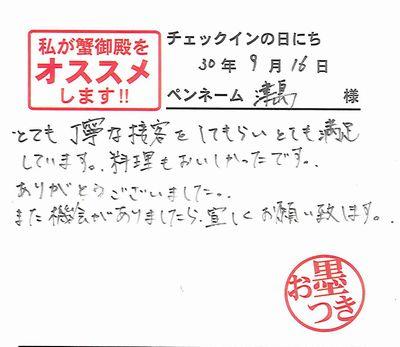 私が蟹御殿を
オススメ
します!!
チェックインの日にち
30年9月16日
ペンネーム 津島 様
とても丁寧な接客をしてもらいとても満足
しています。料理もおいしかったです。
ありがとうございました。
また機会がありましたら、宜しくお願い致します。
お墨つき